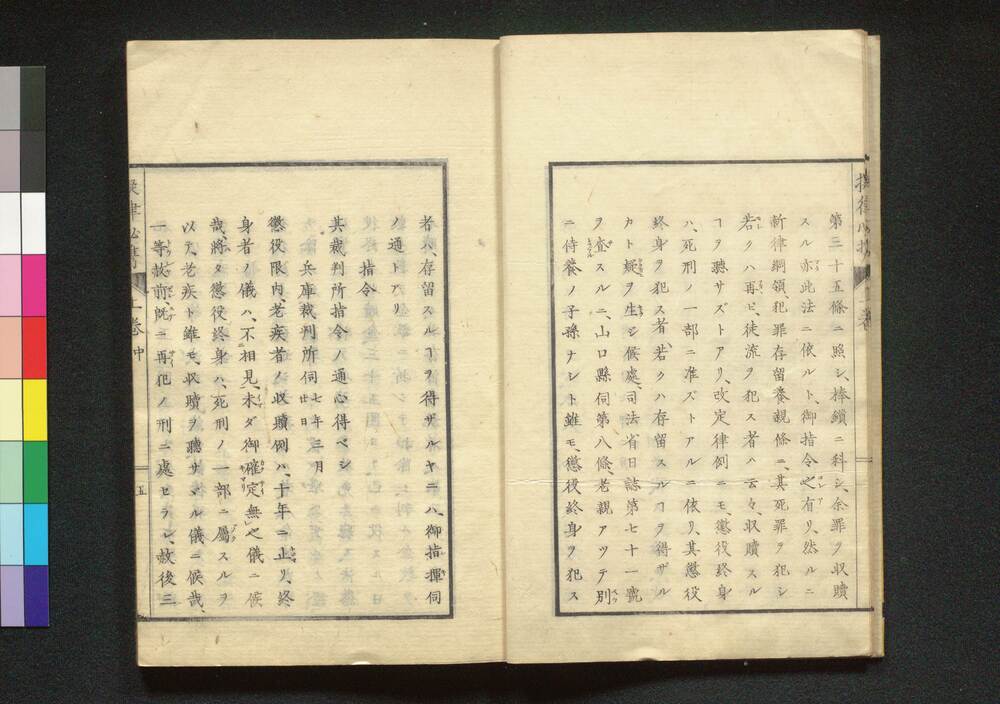 第三十五條ニ照シ、棒鎖ニ科シ、余罪ヲ収贖
スル亦此法ニ依ルト、御指令之有リ、然ルニ
新律綱領、犯罪存留養親條ニ、其死罪ヲ犯シ
若クハ再ビ、徒流ヲ犯ス者ハ云々、収贖スル
ヿヲ聽サズトアリ、改定律例ニモ、懲役終身
ハ、死刑ノ一部ニ准ズトアルニ依リ、其懲役
終身ヲ犯ス者、若クハ存留スルヿヲ得ザル
カト疑ヲ生シ候處、司法省日誌第七十一號
ヲ查スルニ、山口縣伺第八條、老親アツテ別
ニ侍養ノ子孫ナシト雖モ、懲役終身ヲ犯ス
者ハ、存留スルヿヲ得ザルヤニハ、御指揮伺
ノ通トアリ
指令
其裁判所指令ノ通心得ベシ
兵庫裁判所伺七年二月廿日
懲役限内、老疾者ノ収贖例ハ、十年ニ止リ、終
身者ノ儀ハ、不相見、未ダ御確定無之儀ニ候
哉、將タ懲役終身ハ、死刑ノ一部ニ屬スルヲ
以テ、老疾ト雖モ、収贖ヲ聽サヾル儀ニ候哉、
一等赦前、既ニ再犯ノ刑ニ處セラレ、赦後三
五